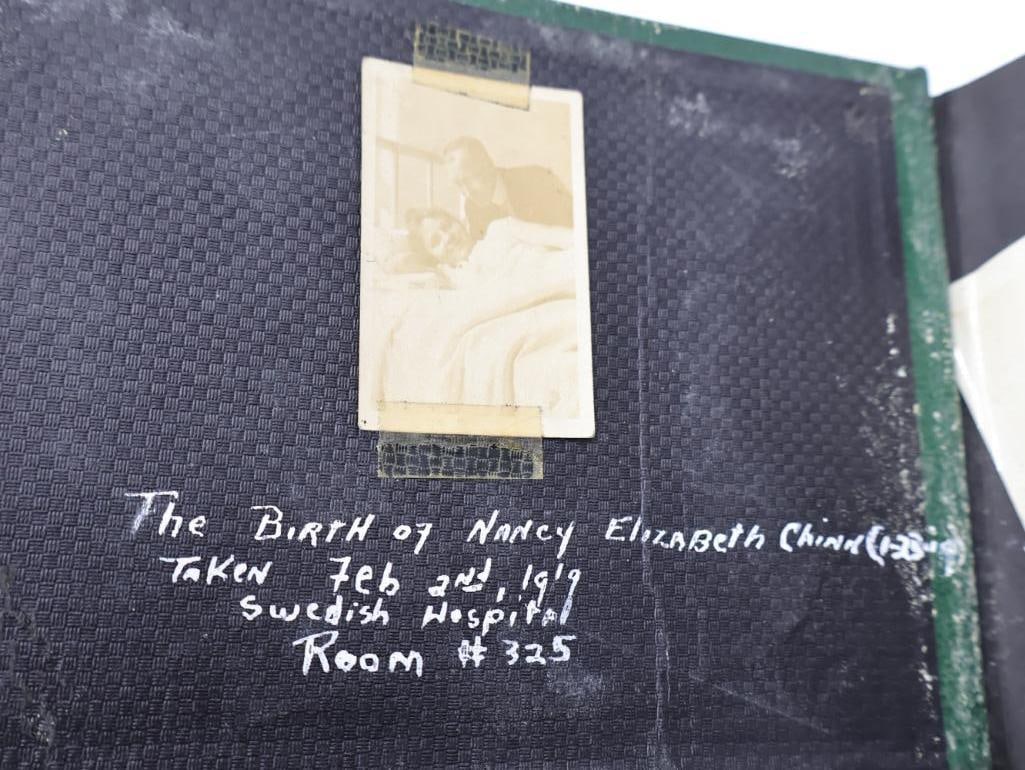 The Birth of Nancy Elizabeth Chinn (1-23-19)
Taken Feb 2nd, 1919
Swedish Hospital
Room # 325